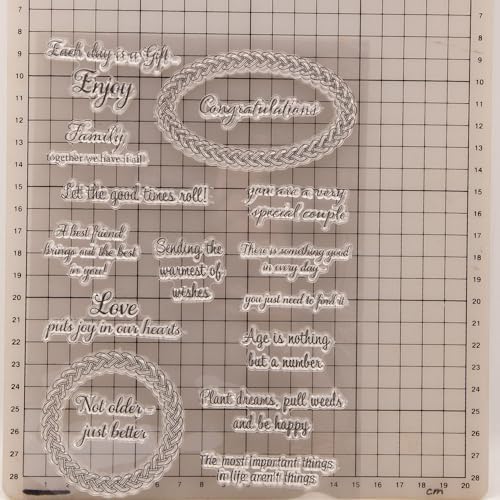 Each day is a Gift
Enjoy
Congratulations
Family
together we have it all
Let the good times roll!
you are a very
special couple
A best friend
brings out the best
in you!
Sending the
warmest of
wishes
There is something good
in every day –
you just need to find it
Love
puts joy in our hearts
Age is nothing
but a number
Not older –
just better
Plant dreams, pull weeds
and be happy
The most important things
in life aren't things
7
8
9
10
11
12
13
14
15
16
17
18
19
20
21
22
23
24
25
26
27
28
7
8
9
10
11
12
13
14
15
16
17
18
19
20
21
22
23
24
25
26
27
28
1 2 3 4 5 6 14 15 16 17 cm 18 20